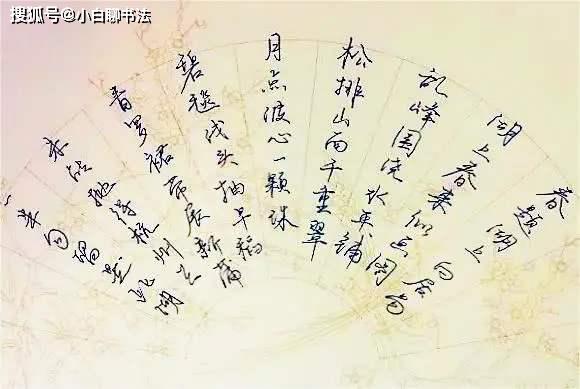 搜狐号@小白聊书法
春题湖上
白居易
湖上春来似画图
乱峰围绕水平铺
松排山面千重翠
月点波心一颗珠
碧毯线头抽早稻
青罗裙带展新蒲
未能抛得杭州去
一半勾留是此湖